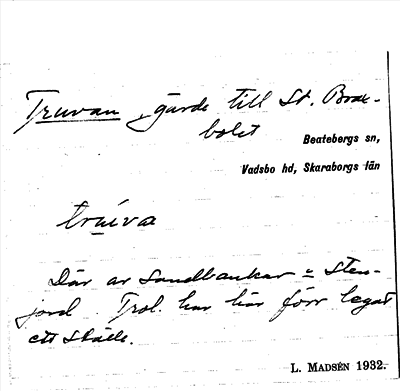 Truvan, gärde till St. Brae-
bolet
Beatebergs sn,
Vadsbo hd, Skaraborgs län
trúiva
Där är sandbankar o sten-
jord Trol. har här förr legat
ett ställe.
L. MADSÉN 1932.